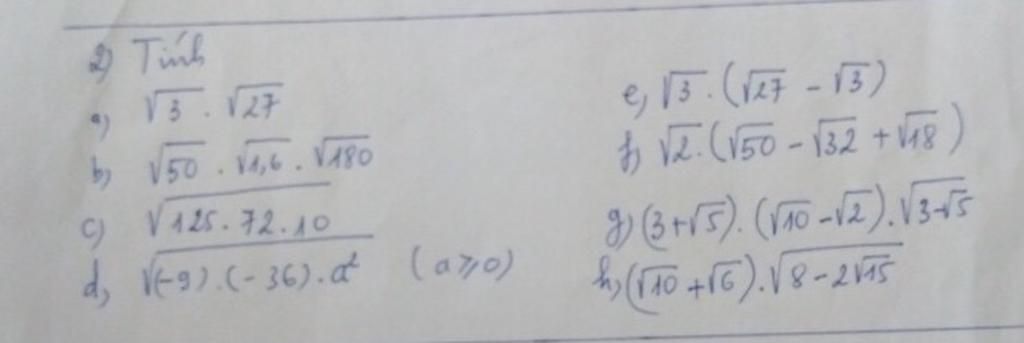 2) Tính
a) √3 . √27
b) √50 . √1,6 . √180
c) √(125 . 72 . 10)
d) √((-9) . (-36) . a²) (a ⩾ 0)
e) √3 . (√27 - √3)
f) √2 . (√50 - √32 + √18)
g) (3 + √5) . (√10 - √2) . √(3 - √5)
h) (√10 + √6) . √(8 - 2√15)